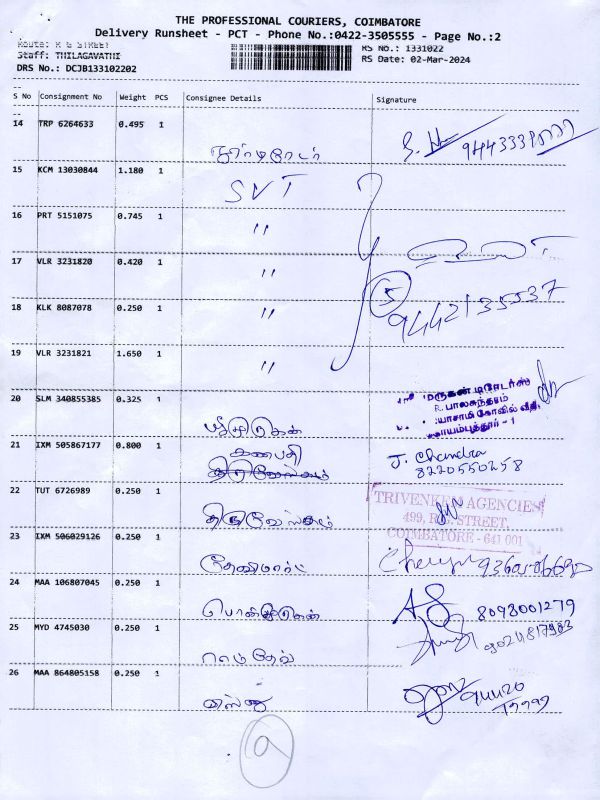 THE PROFESSIONAL COURIERS, COIMBATORE
Delivery Runsheet - PCT - Phone No.:0422-3505555 - Page No.:2
Route: R G STREET
RS No.: 1331022
Staff: THILAGAVATHI
RS Date: 02-Mar-2024
DRS No.: DCJB133102202
S No Consignment No Weight PCS Consignee Details Signature
14 TRP 6264633 0.495 1
15 KCM 13030844 1.180 1 SVT
16 PRT 5151075 0.745 1 "
17 VLR 3231820 0.420 1 "
5
9442135537
18 KLK 8087078 0.250 1 "
19 VLR 3231821 1.650 1 "
20 SLM 340855385 0.325 1
முருகன் டிரேடர்ஸ்
R. பாலசுந்தரம்
கோயம்புத்தூர் - 1
21 IXM 505867177 0.800 1 கணபதி J. Chandra
8220550258
22 TUT 6726989 0.250 1
TRIVENKEM AGENCIES
499, R.G. STREET,
COIMBATORE - 641 001
23 IXM 506029126 0.250 1
24 MAA 106807045 0.250 1 8098001279
25 MYD 4745030 0.250 1 ராமதேவ்
26 MAA 864805158 0.250 1
9